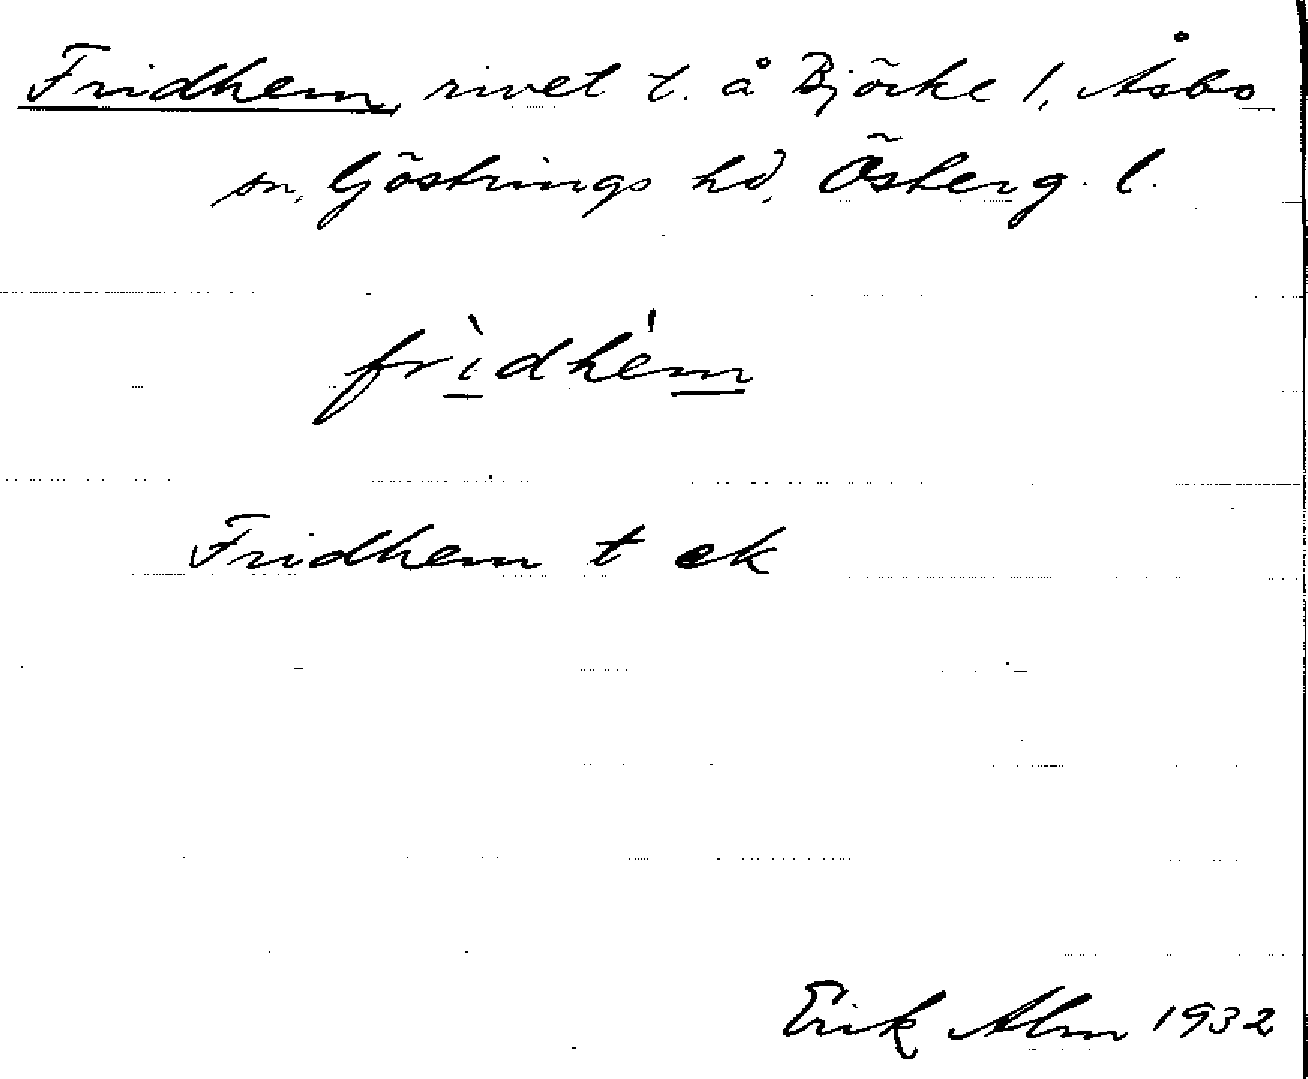 Fridhem, rivet t. å Björke 1, Åsbo
sn, Göstrings hd, Österg. l.
frìdhém
Fridhem t ek
Erik Alm 1932